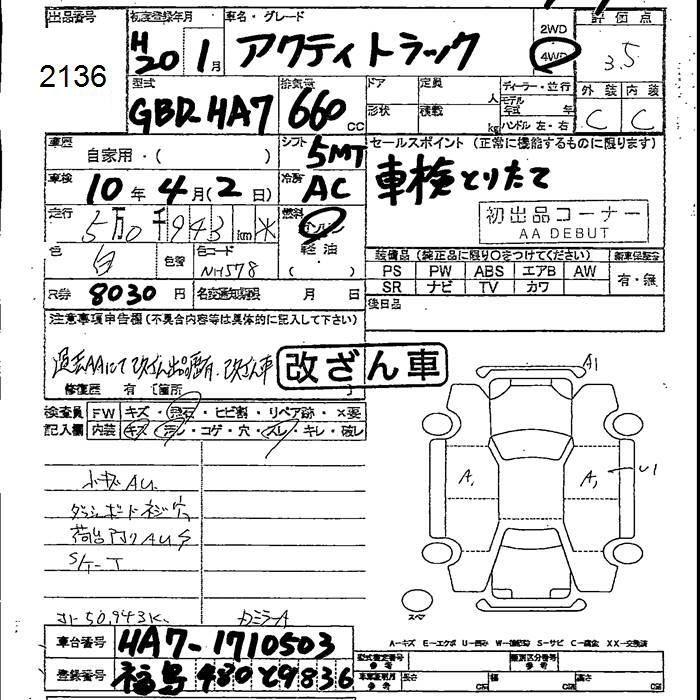 出品番号 初度登録年月 車名・グレード 2WD 評価点
2136 H20 1月 アクティトラック 4WD 3.5
型式 排気量 ドア 定員 人 ディーラー・並行 外装 内装
GBD-HA7 660cc 形状 積載 kg モデル年式 年 ハンドル 左・右 C C
車歴 自家用・( ) シフト 5MT セールスポイント(正常に機能するものに限ります)
車検 10年4月(2日) 冷房 AC 車検とりたて
走行 5万0千943km* 燃料 ガソリン 初出品コーナー
軽油 AA DEBUT
色 白 色替 色コード NH578 ( ) 装備品(純正品に限り○をつけてください) 新車保証書
PS PW ABS エアB AW 有・無
R券 8030円 名変通知期限 月 日 SR ナビ TV カワ
後日品
注意事項申告欄(不具合内容等は具体的に記入して下さい)
過去AAにて改ざん出品歴有、改ざん車 改ざん車
修復歴 有 〔箇所 〕
検査員 FW キズ・飛石・ヒビ割・リペア跡・×要
記入欄 内装 キズ・汚レ・コゲ・穴・スレ・キレ・破レ
A1
A1 A1 U1
小キズAU
ダッシュボードネジ穴
荷台内りAUS
S/T-T
スペア
50,943K
車台番号 HA7-1710503
A−キズ E−エクボ U−凹み S−サビ C−腐食 XX−交換済
型式指定番号 参考 類別区分番号 参考
登録番号 福島480 と9836
車車証明用 参考 長さ cm 幅 cm 高さ cm